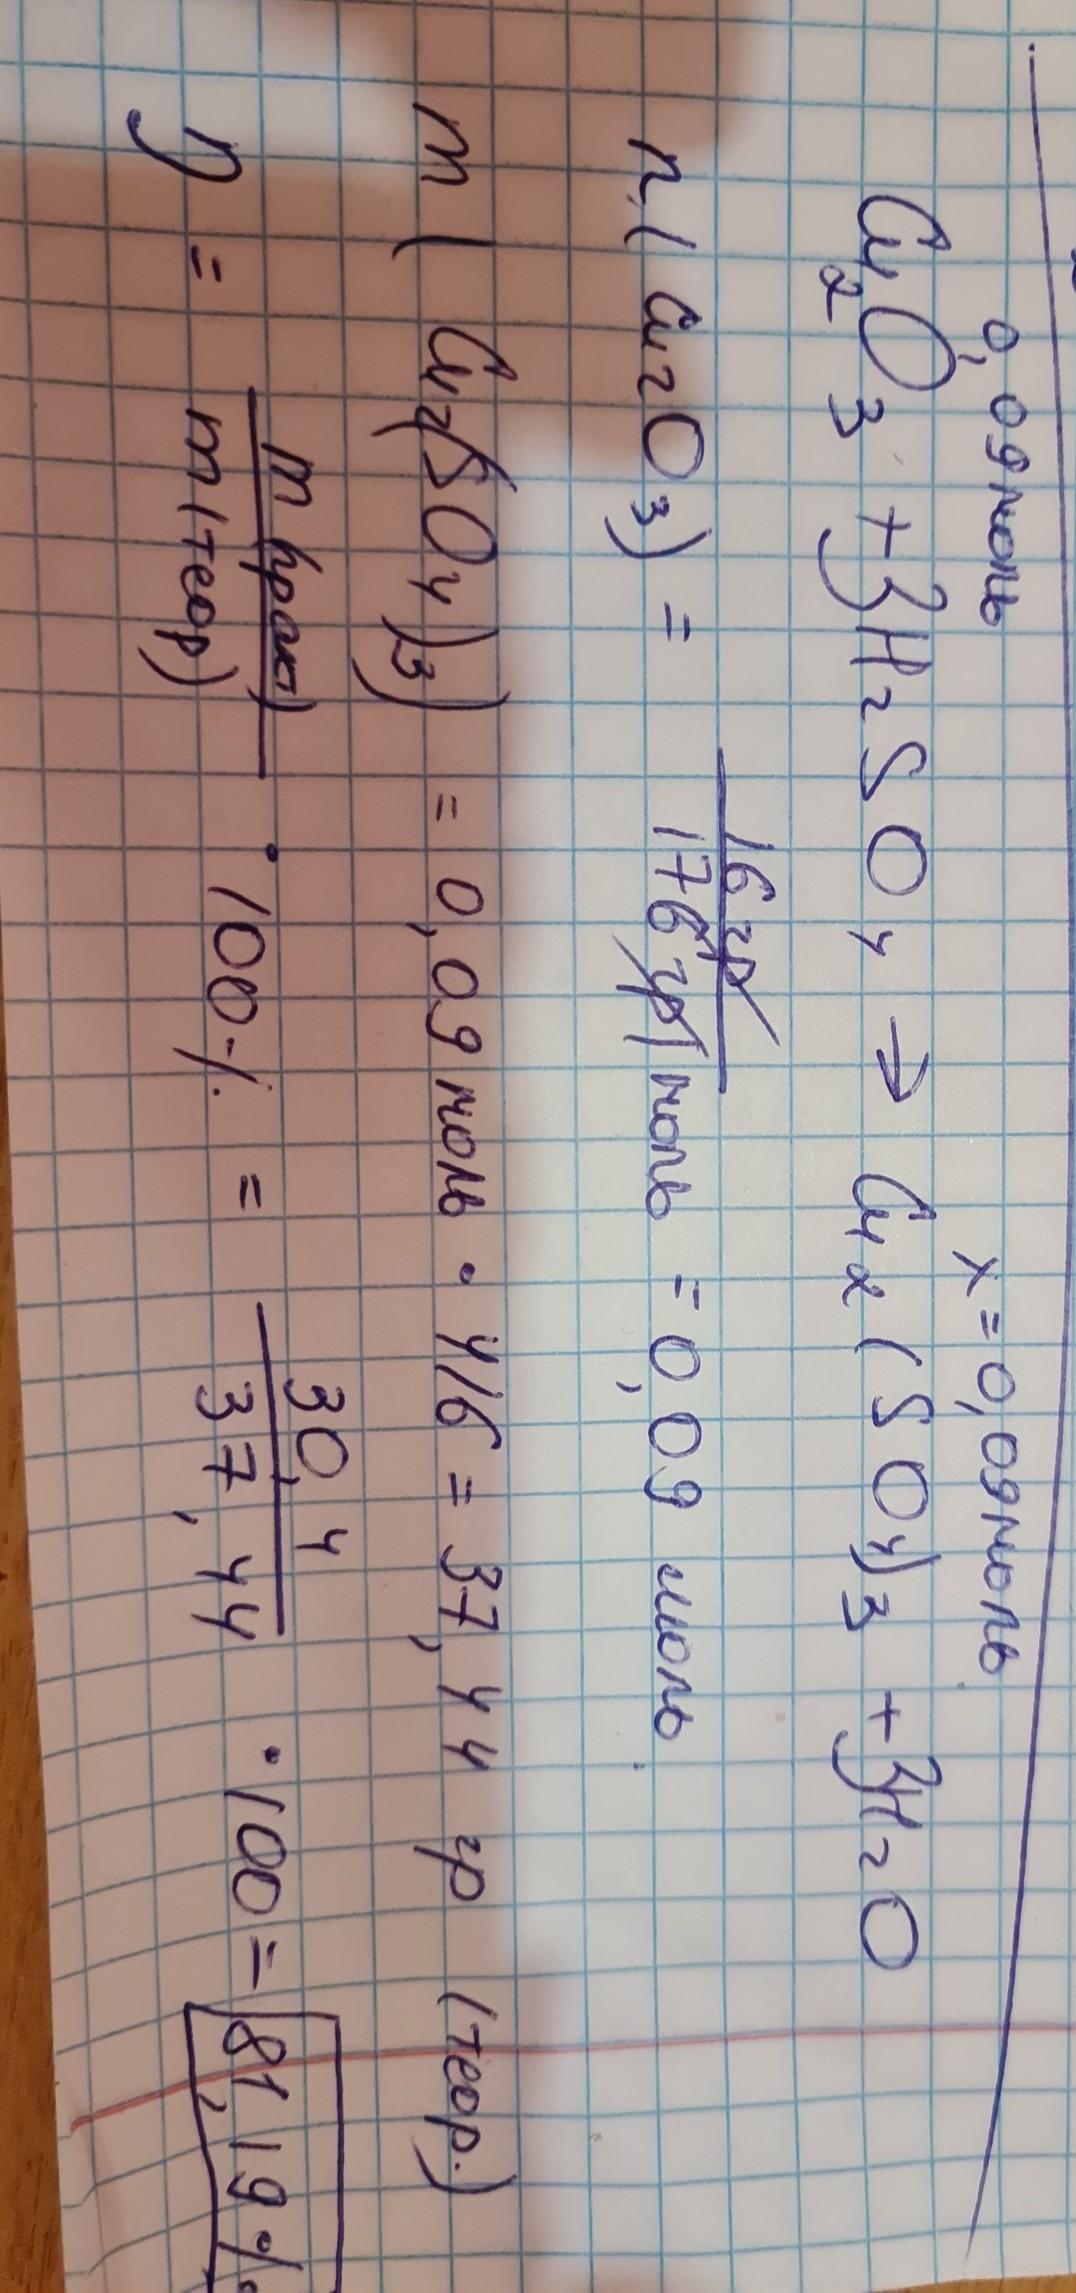 0,09 моль x = 0,09 моль
Cu2O3 + 3H2SO4 → Cu2(SO4)3 + 3H2O
n(Cu2O3) = 16 гр / 176 гр/моль = 0,09 моль
m(Cu2(SO4)3) = 0,09 моль · 416 = 37,44 гр (теор.)
η = m(практ) / m(теор) · 100% = 30,4 / 37,44 · 100 = 81,19%